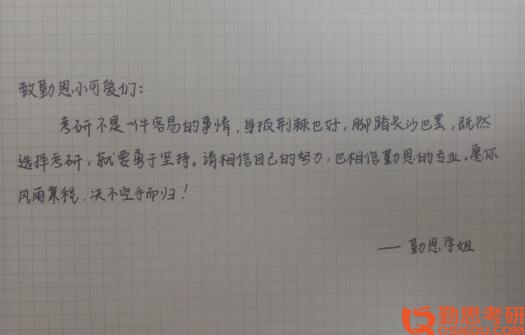 致勤思小可爱们：
考研不是一件容易的事情，身披荆棘也好，脚踏长沙也罢，既然
选择考研，就要勇于坚持。请相信自己的努力，也相信勤思的专业。愿你
风雨兼程，决不空手而归！
——勤思学姐
勤思考研